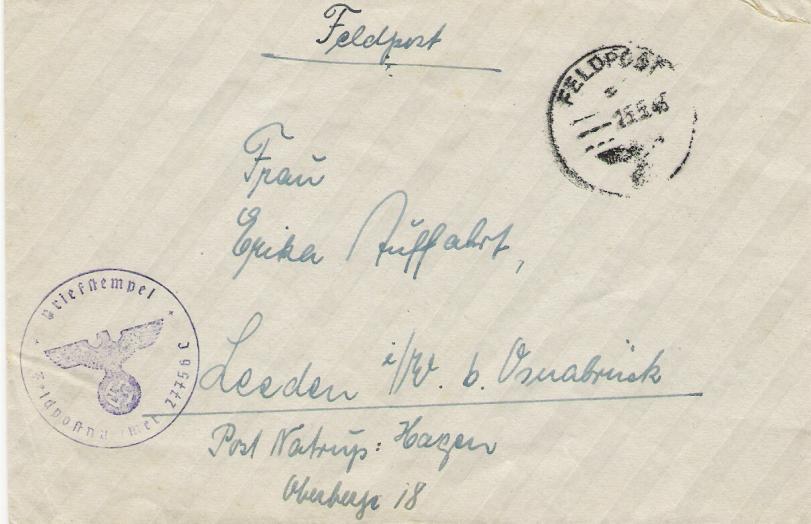 Feldpost
FELDPOST
Frau
Erika Auffahrt,
Leeden i/W. b. Osnabrück
Post Natrup: Hagen
Oberberge 18
Briefstempel
Feldpostnummer 27756 C